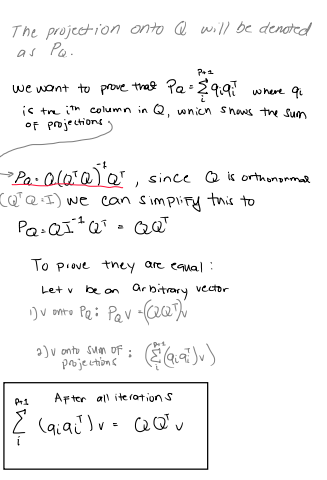 The projection onto Q will be denoted
as P_Q.
We want to prove that P_Q = Σ_i^{P+1} q_i q_i^T where q_i
is the i^th column in Q, which shows the sum
of projections
→ P_Q = Q(Q^TQ)^{-1}Q^T, since Q is orthonormal
(Q^TQ=I) we can simplify this to
P_Q = QI^{-1}Q^T = QQ^T
To prove they are equal:
Let v be an arbitrary vector
1) v onto P_Q: P_Q v = (QQ^T)v
2) v onto sum of projections: (Σ_i^{P+1} (q_i q_i^T) v)
After all iterations
Σ_i^{P+1} (q_i q_i^T) v = QQ^T v